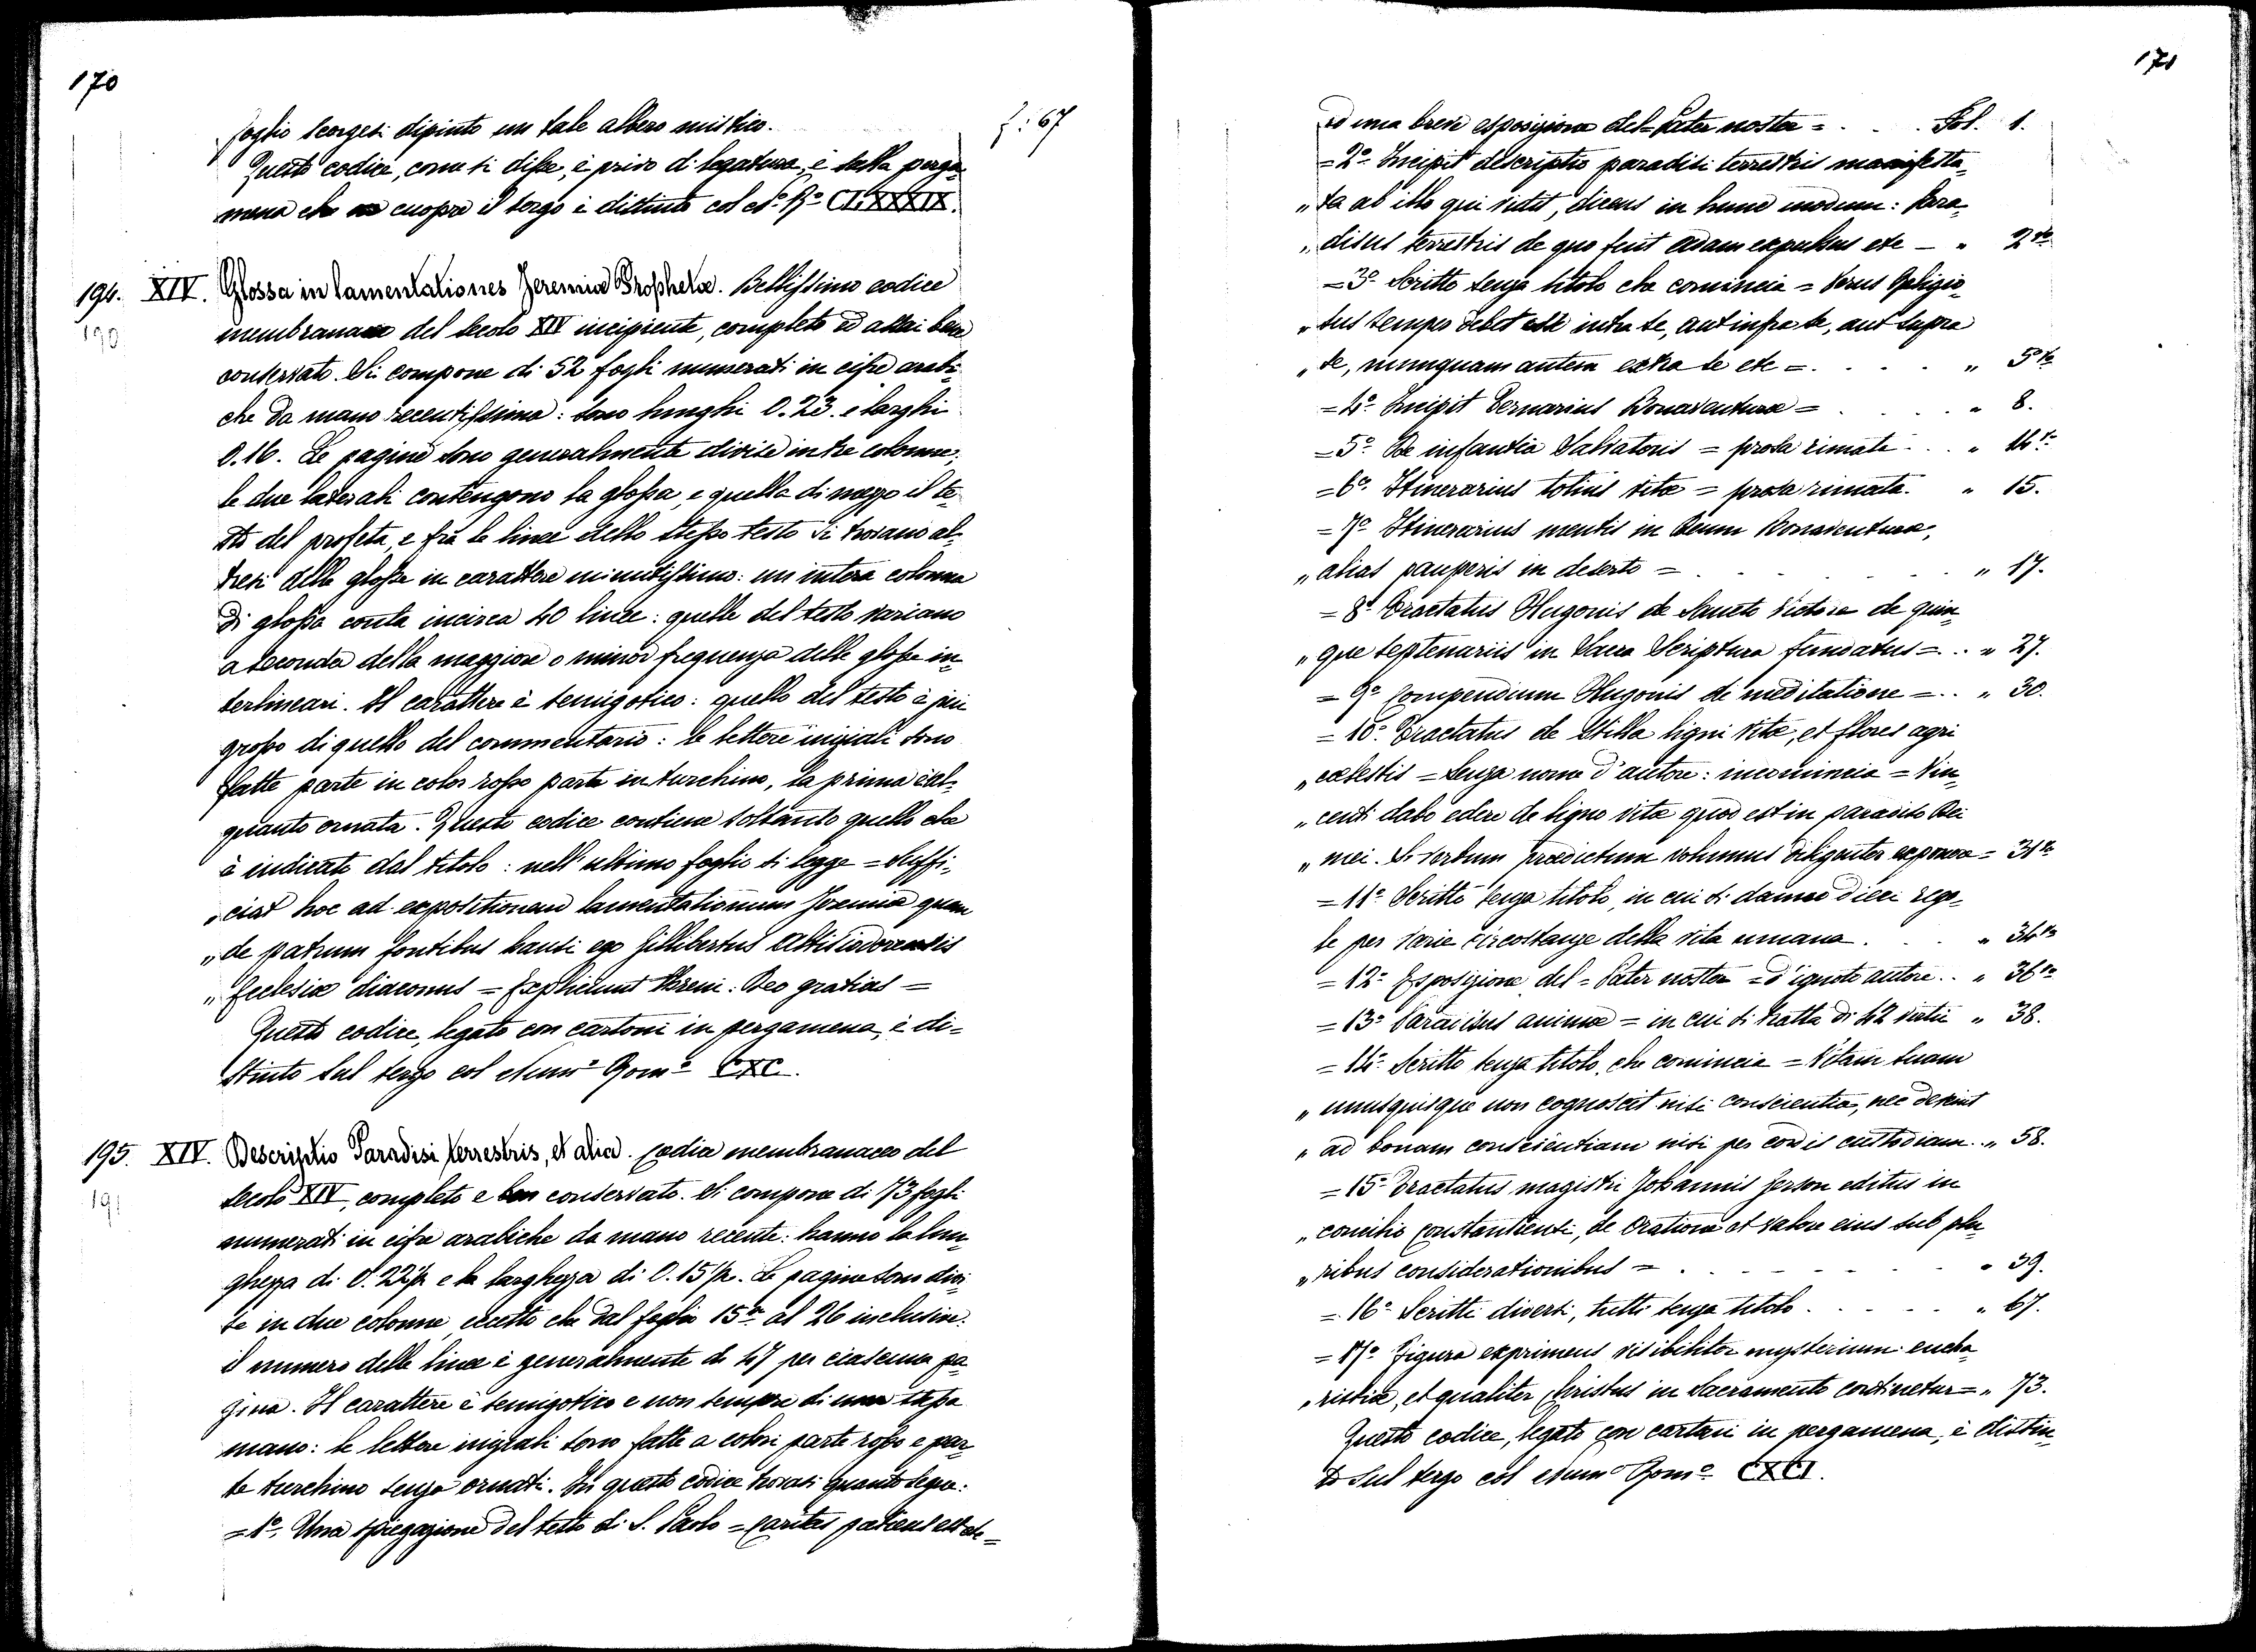 170
foglio scorgesi dipinto un tale albero mistico. f: 67
Questo codice, come si disse, è privo di legatura, e sulla perga-
mena che ne cuopre il tergo è distinto col No. Ro. CLXXXIX.
194. XIV. Glossa in lamentationes Jeremiæ Prophetæ. Bellissimo codice
190
membranaceo del secolo XIV incipiente, completo ed assai ben
conservato. Si compone di 52 fogli numerati in cifre arabi-
che da mano recentissima: sono lunghi 0.23. e larghi
0.16. Le pagine sono generalmente divise in tre colonne;
le due laterali contengono la glossa, e quella di mezzo il te-
sto del profeta, e fra le linee dello stesso testo si trovano al-
tresì delle glosse in carattere minutissimo: un intera colonna
di glossa conta incirca 40 linee: quelle del testo variano
a seconda della maggiore o minor frequenza delle glosse in-
terlineari. Il carattere è semigotico: quello del testo è più
grosso di quello del commentario: le lettere iniziali sono
fatte parte in color rosso parte in turchino, la prima è al-
quanto ornata. Questo codice contiene soltanto quello che
è indicato dal titolo: nell'ultimo foglio si legge = Suffi-
„ciat hoc ad expositionem lamentationum Jeremiæ quam
„de patrum fontibus hausi ego Gillibertus Altisiodorensis
„Ecclesiæ diaconus = Expliciunt threni: Deo gratias =
Questo codice, legato con cartoni in pergamena, è di-
stinto sul tergo col Numo Romo CXC.
195. XIV. Descriptio Paradisi terrestris, et alia. Codice membranaceo del
191
secolo XIV, completo e ben conservato. Si compone di 73 fogli
numerati in cifre arabiche da mano recente: hanno la lun-
ghezza di 0.22½ e la larghezza di 0.15½. Le pagine sono divi-
se in due colonne, eccetto che dal foglio 15to al 26 inclusive:
il numero delle linee è generalmente di 47 per ciascuna pa-
gina. Il carattere è semigotico e non sempre di una stessa
mano: le lettere iniziali sono fatte a colori parte rosso e par-
te turchino senza ornati. In questo codice trovasi quanto segue:
=1o. Una spiegazione del testo di S. Paolo = Caritas patiens est etc=
171
ed una breve esposizione del = Pater noster = . . . Fol. 1.
=2o Incipit descriptio paradisi terrestris manifesta-
„ta ab illo qui vidit, dicens in hunc modum: Para-
„disus terrestris de quo fuit Adam expulsus etc — „ 2to
=3o Scritto senza titolo che comincia = Verus Religio-
„sus semper debet esse intra se, aut infra se, aut supra
„se, nunquam autem extra se etc = . . . . „ 5to
=4o Incipit Ternarius Bonaventuræ = . . . . „ 8.
=5o De infantia Salvatoris = prosa rimata . . . „ 14to
=6o Itinerarius totius vitæ = prosa rimata. „ 15.
=7o Itinerarius mentis in Deum Bonaventuræ,
„alias pauperis in deserto = . . . . „ 17.
=8o Tractatus Hugonis de Sancto Victore de quin-
„que septenariis in Sacra Scriptura fundatus = . . „ 27.
=9o Compendium Hugonis de meditatione = . . „ 30.
=10o Tractatus de Stilla ligni vitæ, et flores agri
„cœlestis = Senza nome d'autore: incomincia = Vin-
„centi dabo edere de ligno vitæ quod est in paradiso Dei
„mei. Si verbum prædictum volumus diligenter exponere = 31to
=11o Scritto senza titolo, in cui si danno dieci rego-
le per varie circostanze della vita umana . . . „ 34to
=12o Esposizione del = Pater noster = d'ignoto autore . . „ 36to
=13o Paradisus animæ = in cui si tratta di 42 virtù „ 38.
=14o Scritto senza titolo, che comincia = Vitam suam
„unusquisque non cognoscit nisi conscientia, nec devenit
„ad bonam conscientiam nisi per cordis custodiam. „ 58.
=15o Tractatus magistri Johannis Gerson editus in
„concilio Constantienti, de Oratione et valore eius sub plu-
„ribus considerationibus = . . . . „ 39.
=16o Scritti diversi, tutti senza titolo . . . . „ 67.
=17o Figura exprimens visibiliter mysterium eucha-
„ristiæ, et qualiter Christus in Sacramento continetur = „ 73.
Questo codice, legato con cartoni in pergamena, è distin-
to sul tergo col Numo Romo CXCI.